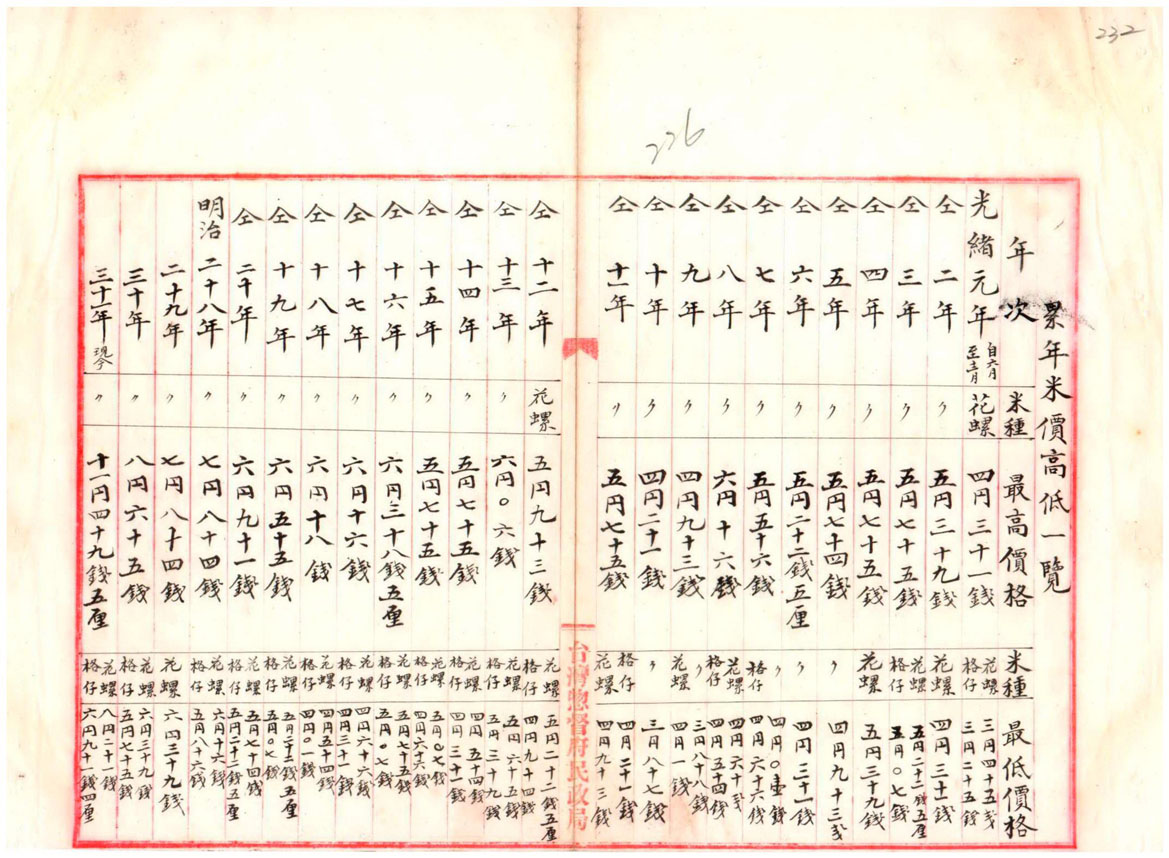 232
226
累年米價高低一覽
年次 米種 最高價格 米種 最低價格
光緒元年 自六月至十二月 花螺 四円三十一錢 花螺 三円四十五戋
格仔 三円二十五錢
仝 二年 〃 五円三十九錢 花螺 四円三十一錢
仝 三年 〃 五円七十五錢 花螺 五円二十二錢五厘
格仔 五円〇七錢
仝 四年 〃 五円七十五錢 花螺 五円三十九錢
仝 五年 〃 五円七十四錢 〃 四円九十三戋
仝 六年 〃 五円二十二錢五厘 〃 四円三十一錢
仝 七年 〃 五円五十六錢 〃 四円〇壹錢
格仔 四円六十六錢
仝 八年 〃 六円十六錢 花螺 四円六十戋
格仔 四円五十四錢
仝 九年 〃 四円九十三錢 〃 三円八十八錢
花螺 四円一錢
仝 十年 〃 四円二十一錢 〃 三円八十七錢
仝 十一年 〃 五円七十五錢 格仔 四円二十一錢
花螺 四円九十三錢
台灣總督府民政局
仝 十二年 花螺 五円九十三錢 花螺 五円二十二錢五厘
格仔 四円九十四錢
仝 十三年 〃 六円〇六錢 花螺 五円六十五錢
格仔 五円三十九錢
仝 十四年 〃 五円七十五錢 花螺 四円五十四錢
格仔 四円三十一錢
仝 十五年 〃 五円七十五錢 花螺 五円〇七錢
格仔 四円六十六錢
仝 十六年 〃 六円三十八錢五厘 花螺 五円七十五錢
格仔 五円〇七錢
仝 十七年 〃 六円十六錢 花螺 四円六十六錢
格仔 四円三十一錢
仝 十八年 〃 六円十八錢 花螺 四円五十四錢
格仔 四円〇一錢
仝 十九年 〃 六円五十五錢 花螺 五円二十二錢五厘
格仔 五円〇七錢
仝 二十年 〃 六円九十一錢 花螺 五円七十四錢
格仔 五円二十二錢五厘
明治 二十八年 〃 七円八十四錢 花螺 六円十六錢
格仔 五円八十六錢
二十九年 〃 七円八十四錢 花螺 六円三十九錢
三十年 〃 八円六十五錢 花螺 六円三十九錢
格仔 五円七十五錢
三十一年 現今 〃 十一円四十九錢五厘 花螺 八円二十一錢
格仔 六円九十一錢四厘